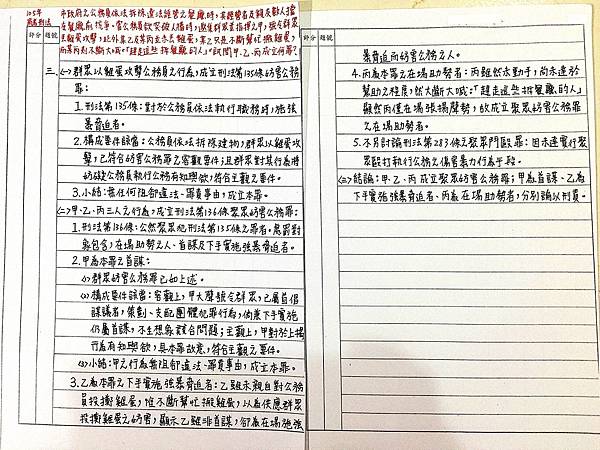 105年
評分
題號
市政府之公務員依法拆除違法經營之餐廳時，
三、(一)群眾以雞蛋攻擊公務員之行為，成立刑法第135條妨害公務
罪：
1.刑法第135條：對於公務員依法執行職務時，施強
暴脅迫者。
2.構成要件該當：公務員依法拆除建物，群眾以雞蛋攻
擊，已符合妨害公務罪之客觀要件；且群眾對其行為將
妨礙公務員執行公務有知與欲，符合主觀之要件。
3.小結：無任何阻卻違法、罪責事由，成立本罪。
(二)甲、乙、丙三人之行為，成立刑法第136條聚眾妨害公務罪：
1.刑法第136條：公然聚眾犯刑法第135條之罪者。處罰對
象包含，在場助勢之人、首謀及下手實施強暴脅迫者。
2.甲為本罪之首謀：
(1)群眾妨害公務罪已如上述。
(2)構成要件該當：客觀上，甲大聲號令群眾，已屬首倡
謀議者，策劃、支配團體犯罪行為，倘兼下手實施
仍屬首謀，不生想像競合問題；主觀上，甲對於上揭
行為有知與欲，具本罪故意，符合主觀之要件。
(3)小結：甲之行為無阻卻違法、罪責事由，成立本罪。
3.乙為本罪之下手實施強暴脅迫者：乙雖未親自對公務
員投擲雞蛋，惟不斷幫忙搬雞蛋，以為供應群眾
投擲雞蛋之妨害，顯示乙雖非首謀，卻為在場施強
評分
題號
暴脅迫而妨害公務之人。
4.丙為本罪之在場助勢者：丙雖然未動手，尚未達於
幫助之程度，然大斷大喊：「趕走這些拆餐廳的人」
顯然丙僅在場張揚聲勢，故成立聚眾妨害公務罪
之在場助勢者。
5.不另討論刑法第283條之聚眾鬥毆罪：因未達實行聚
眾毆打執行公務之傷害暴力行為手段。
(三)結論：甲、乙、丙成立聚眾妨害公務罪；甲為首謀、乙為
下手實施強暴脅迫者、丙為在場助勢者，分別論以刑責。